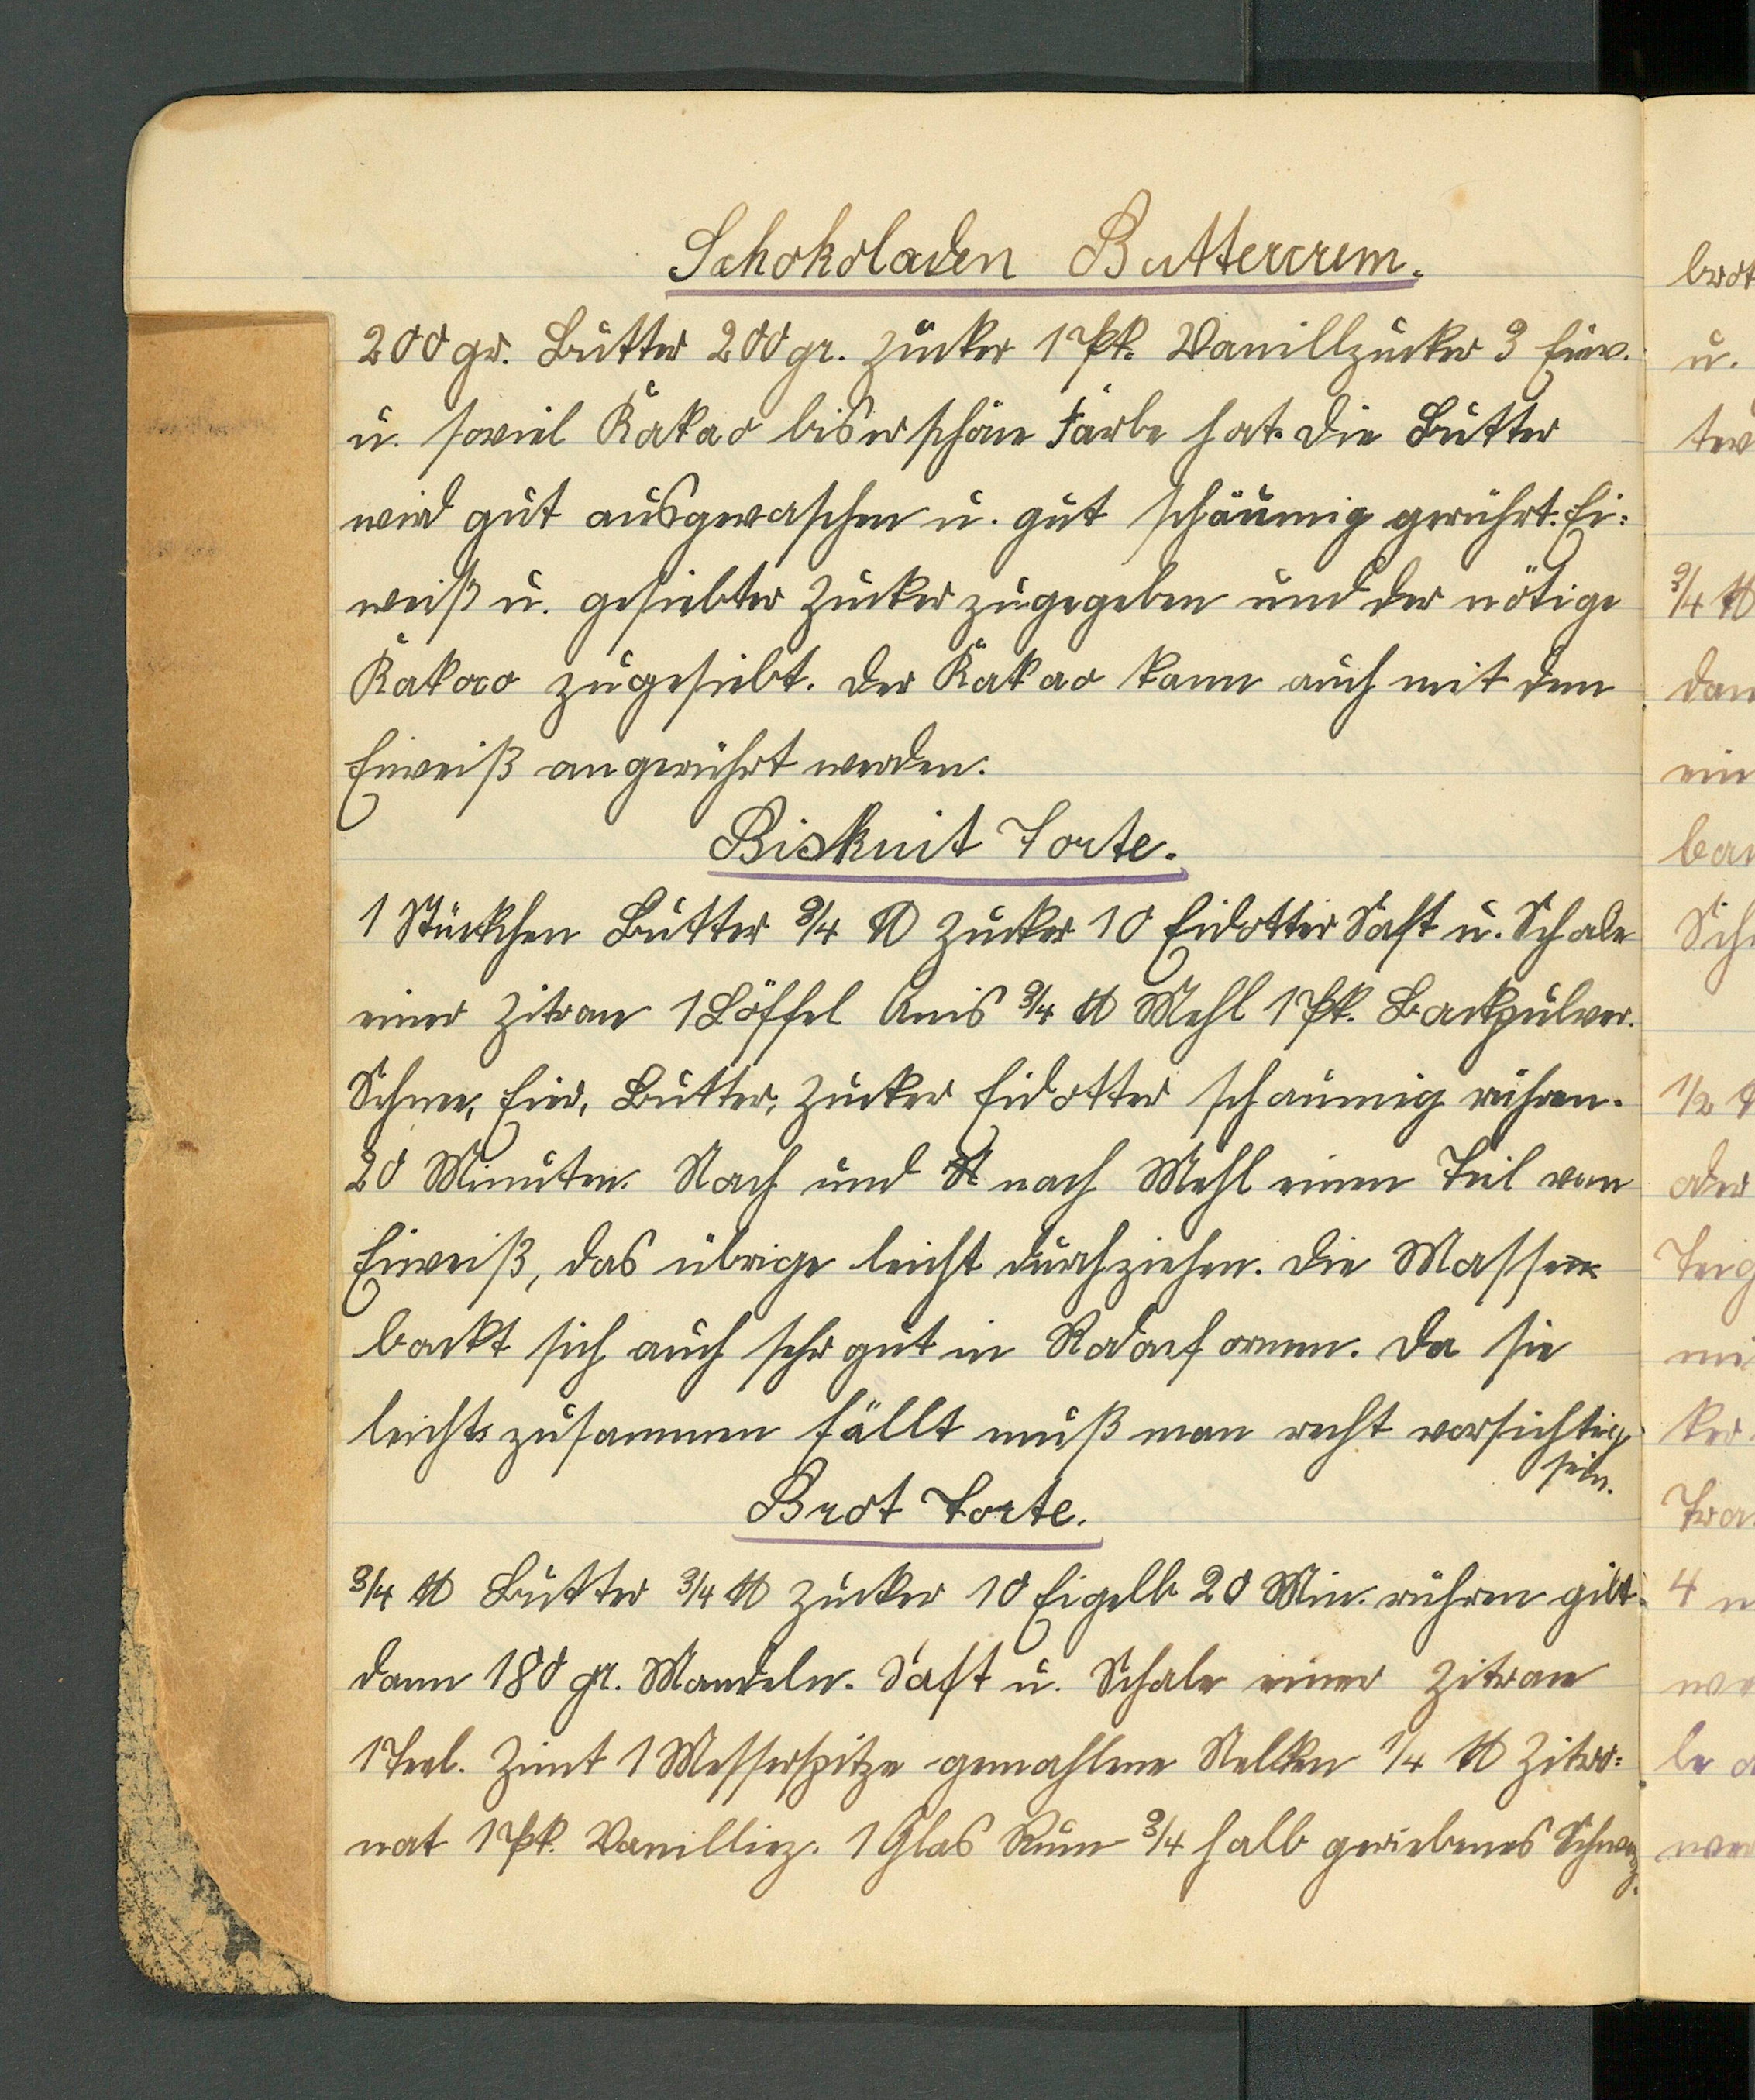 Schokoladen Buttercrem.
200 gr. Butter 200 gr. Zucker 1 Pk. Vanillzucker 3 Eiw.
u. soviel Kakao bis er schöne Farbe hat. Die Butter
wird gut ausgewaschen u. gut schäumig gerührt. Ei=
weiß u. gesiebter Zucker zugegeben und der nötige
Kakao zugesiebt. Der Kakao kann auch mit dem
Eiweiß angerührt werden.
Biskuit Torte.
1 Stückchen Butter 3/4 ℔ Zucker 10 Eidotter Saft u. Schale
einer Zitrone 1 Löffel Anis 3/4 ℔ Mehl 1 Pk. Backpulver.
Schnee, Butter, Zucker Eidotter schaumig rühren.
20 Minuten. Nach und nach Mehl einen Teil vom
Eiweiß, das übrige leicht durchziehen. Die Masse
backt sich auch sehr gut in Radarformen. Da sie
leicht zusammen fällt muß man recht vorsichtig
sein.
Brot Torte.
3/4 ℔ Butter 3/4 ℔ Zucker 10 Eigelb 20 Min. rühren gibt
dann 180 gr. Mandeln. Saft u. Schale einer Zitrone
1 Teel. Zimt 1 Messerspitze gemahlene Nelken 1/4 ℔ Zitro=
nat 1 Pk. Vanilliez. 1 Glas Rum 3/4 halb geriebenes Schwarz.
brot
u.
3/4 ℔
dan
ein
1/2
oder
Teig
ker.
4